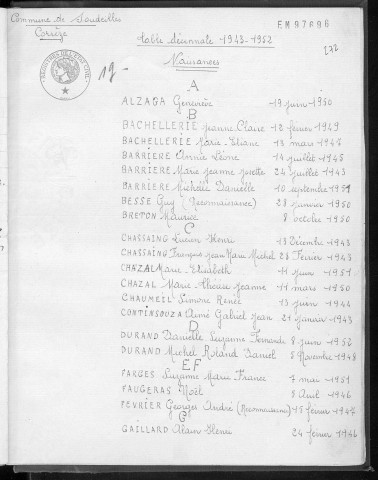 Commune de Soudeilles
Corrèze
EM 97696
272
table décennale 1943-1952
Naissances
19
A
ALZAGA Geneviève 19 juin 1950
B
BACHELLERIE Jeanne Claire 12 février 1949
BACHELLERIE Marie-Eliane 13 mars 1947
BARRIERE Annie Léone 14 juillet 1945
BARRIERE Marie Jeanne Josette 24 juillet 1943
BARRIERE Michelle Danielle 10 septembre 1951
BESSE Guy (Reconnaissance) 28 janvier 1950
BRETON Maurice 8 octobre 1950
C
CHASSAING Lucien Henri 13 Décembre 1943
CHASSAING François Jean Marc Michel 28 Février 1943
CHAZAL Marie-Elisabeth 11 juin 1951
CHAZAL Marie-Thérèse Jeanne 11 mars 1950
CHAUMEIL Simone Renée 13 juin 1944
CONTINSOUZA Aimé Gabriel Jean 21 janvier 1943
D
DURAND Danielle Suzanne Fernande 8 juin 1952
DURAND Michel Roland Daniel 5 Novembre 1948
EF
FARGES Suzanne Marie France 7 mai 1951
FAUGERAS Noël 5 Avril 1946
FEVRIER Georges André (Reconnaissance) 15 février 1947
G
GAILLARD Alain Henri 24 février 1946